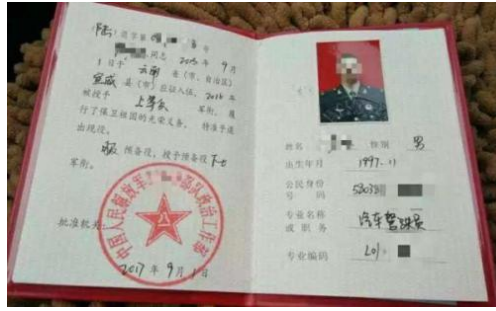 陆 退字第 号
同志 2015 年 9 月
1 日于 云南 省（市、自治区）
宣威 县（市）应征入伍，2016 年
被授予 上等兵 军衔，履
行了保卫祖国的光荣义务，特准予退
出现役。
服 预备役，授予预备役 下士
军衔。
批准机关：
中国人民解放军 部队政治工作部
2017 年 9 月 1 日
姓名 性别 男
出生年月 1997.11
公民身份
号 码 530381
专业名称
或 职 务 汽车驾驶员
专业编码